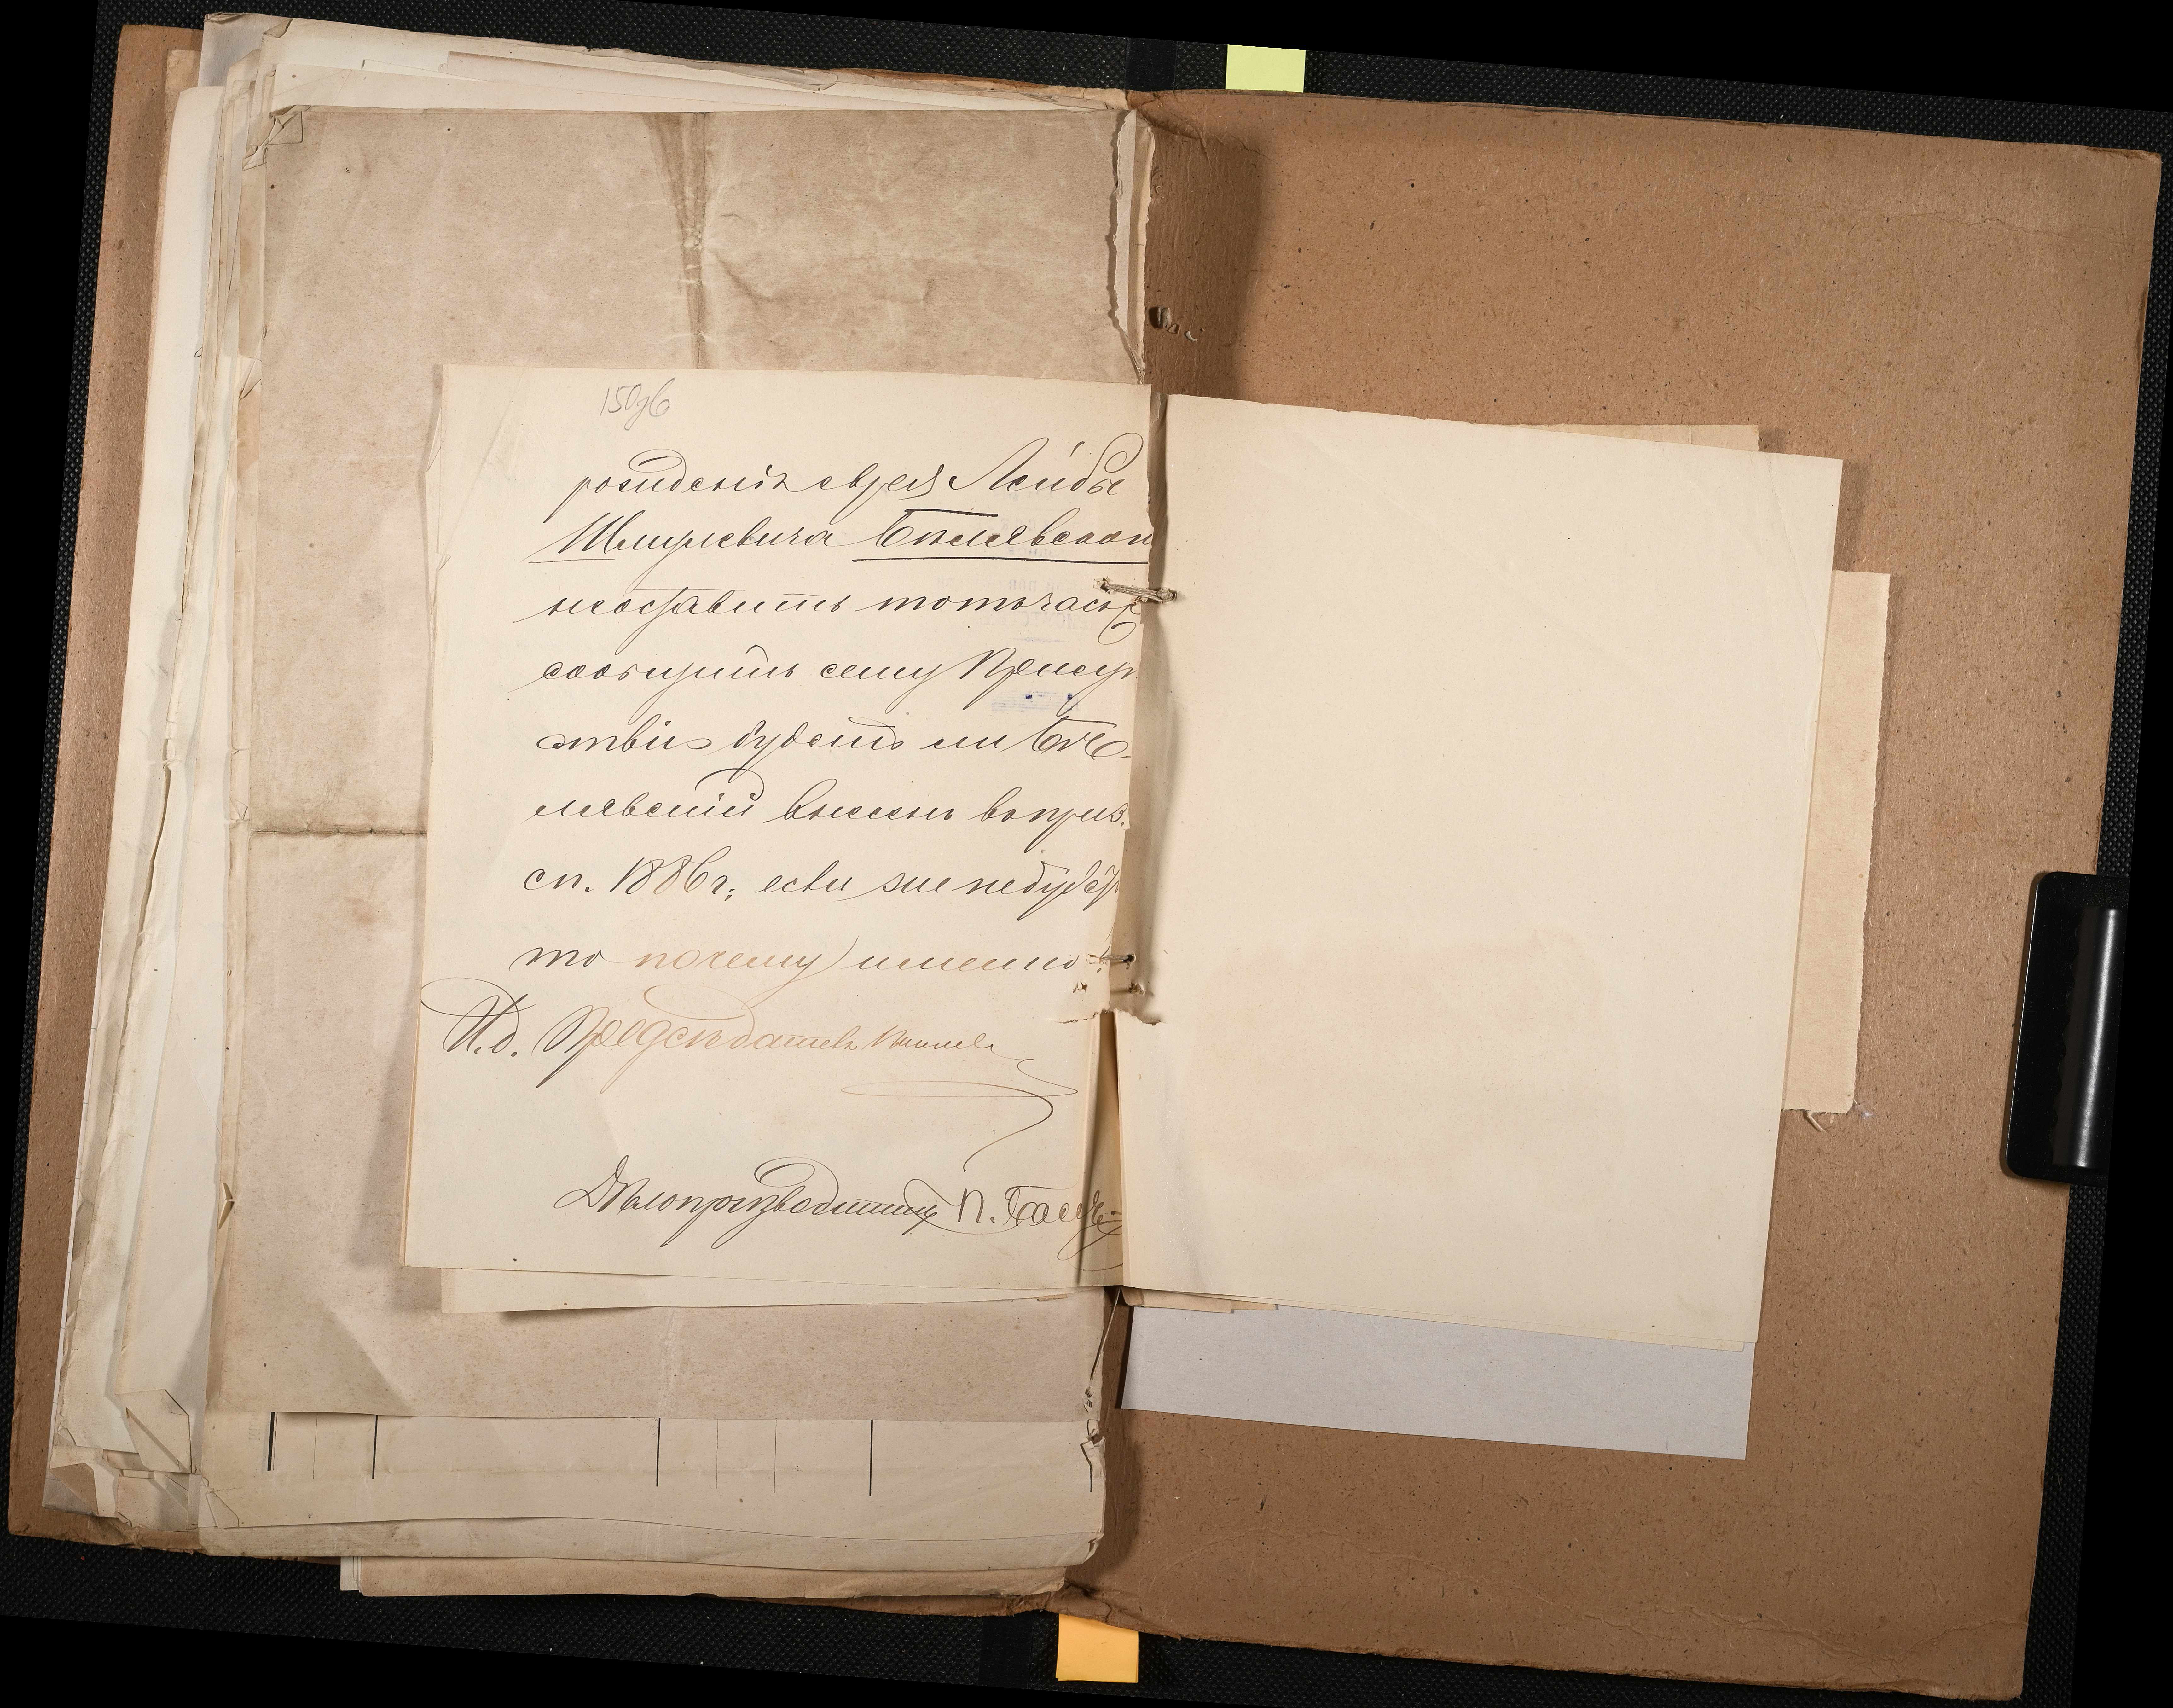 150зв
рожденія еврея Лейбы
Шмулевича Бѣлявскаго
неоставить тотъ часъ
сообщить сему Присут
ствію будетъ ли Бѣ-
лявскій внесенъ въ приз.
сп. 1886 г; если же не будетъ
то почему именно
И.д. Предсѣдателя
Дѣлопроизводитель П.